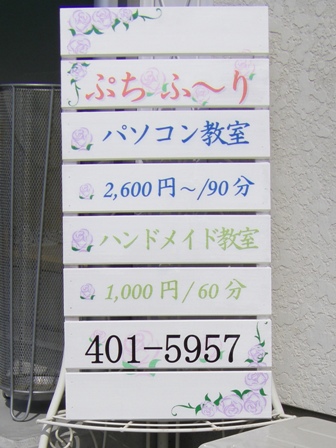 ぷちふ～り
パソコン教室
2,600円～/90分
ハンドメイド教室
1,000円/60分
401-5957